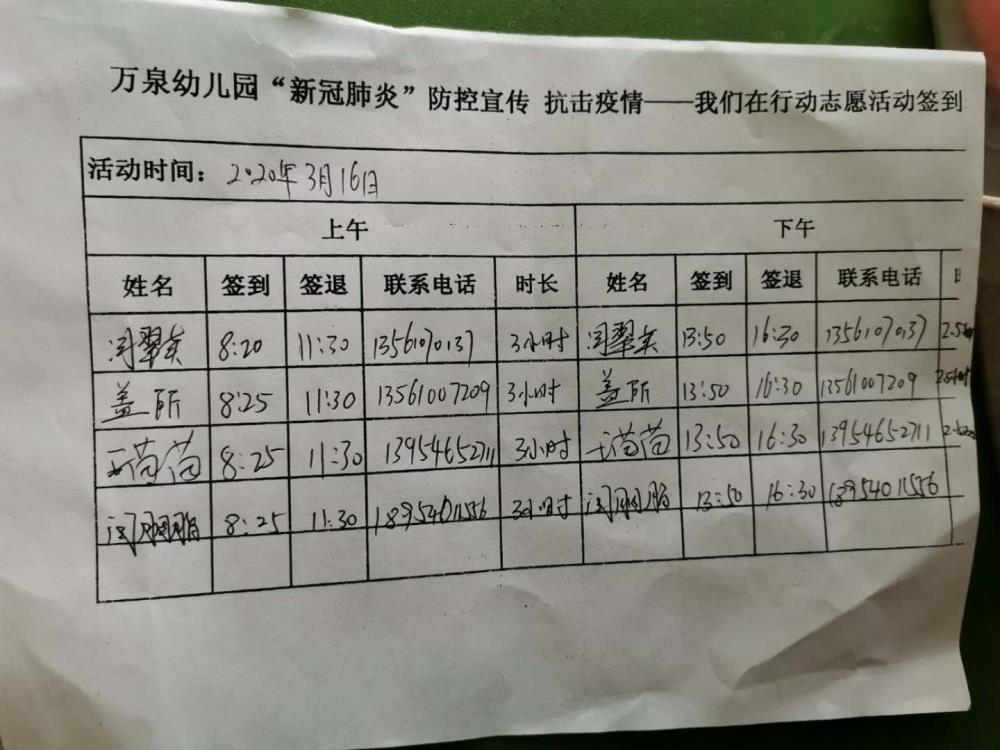 万泉幼儿园“新冠肺炎”防控宣传 抗击疫情——我们在行动志愿活动签到
活动时间： 2020年3月16日
上午 下午
姓名 签到 签退 联系电话 时长 姓名 签到 签退 联系电话
8:20 11:30 3小时 13:50 16:30
盖所 8:25 11:30 13561007209 3小时 盖所 13:50 16:30 13561007209
王苗苗 8:25 11:30 13954652711 3小时 王苗苗 13:50 16:30 13954652711
8:25 11:30 18954011556 3小时 13:50 16:30 18954011556